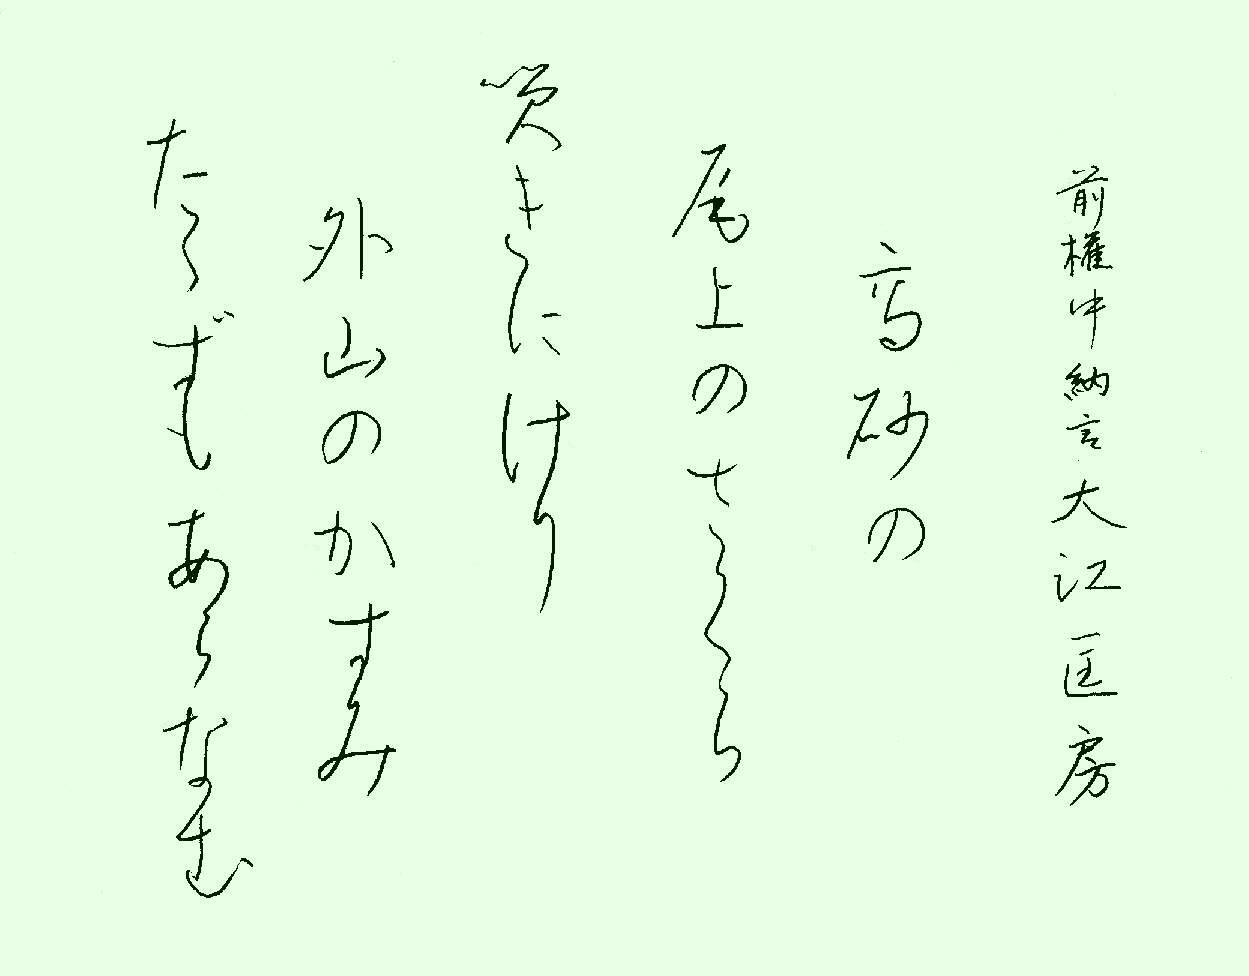 前権中納言大江匡房
高砂の
尾上のさくら
咲きにけり
外山のかすみ
たゝずもあらなむ